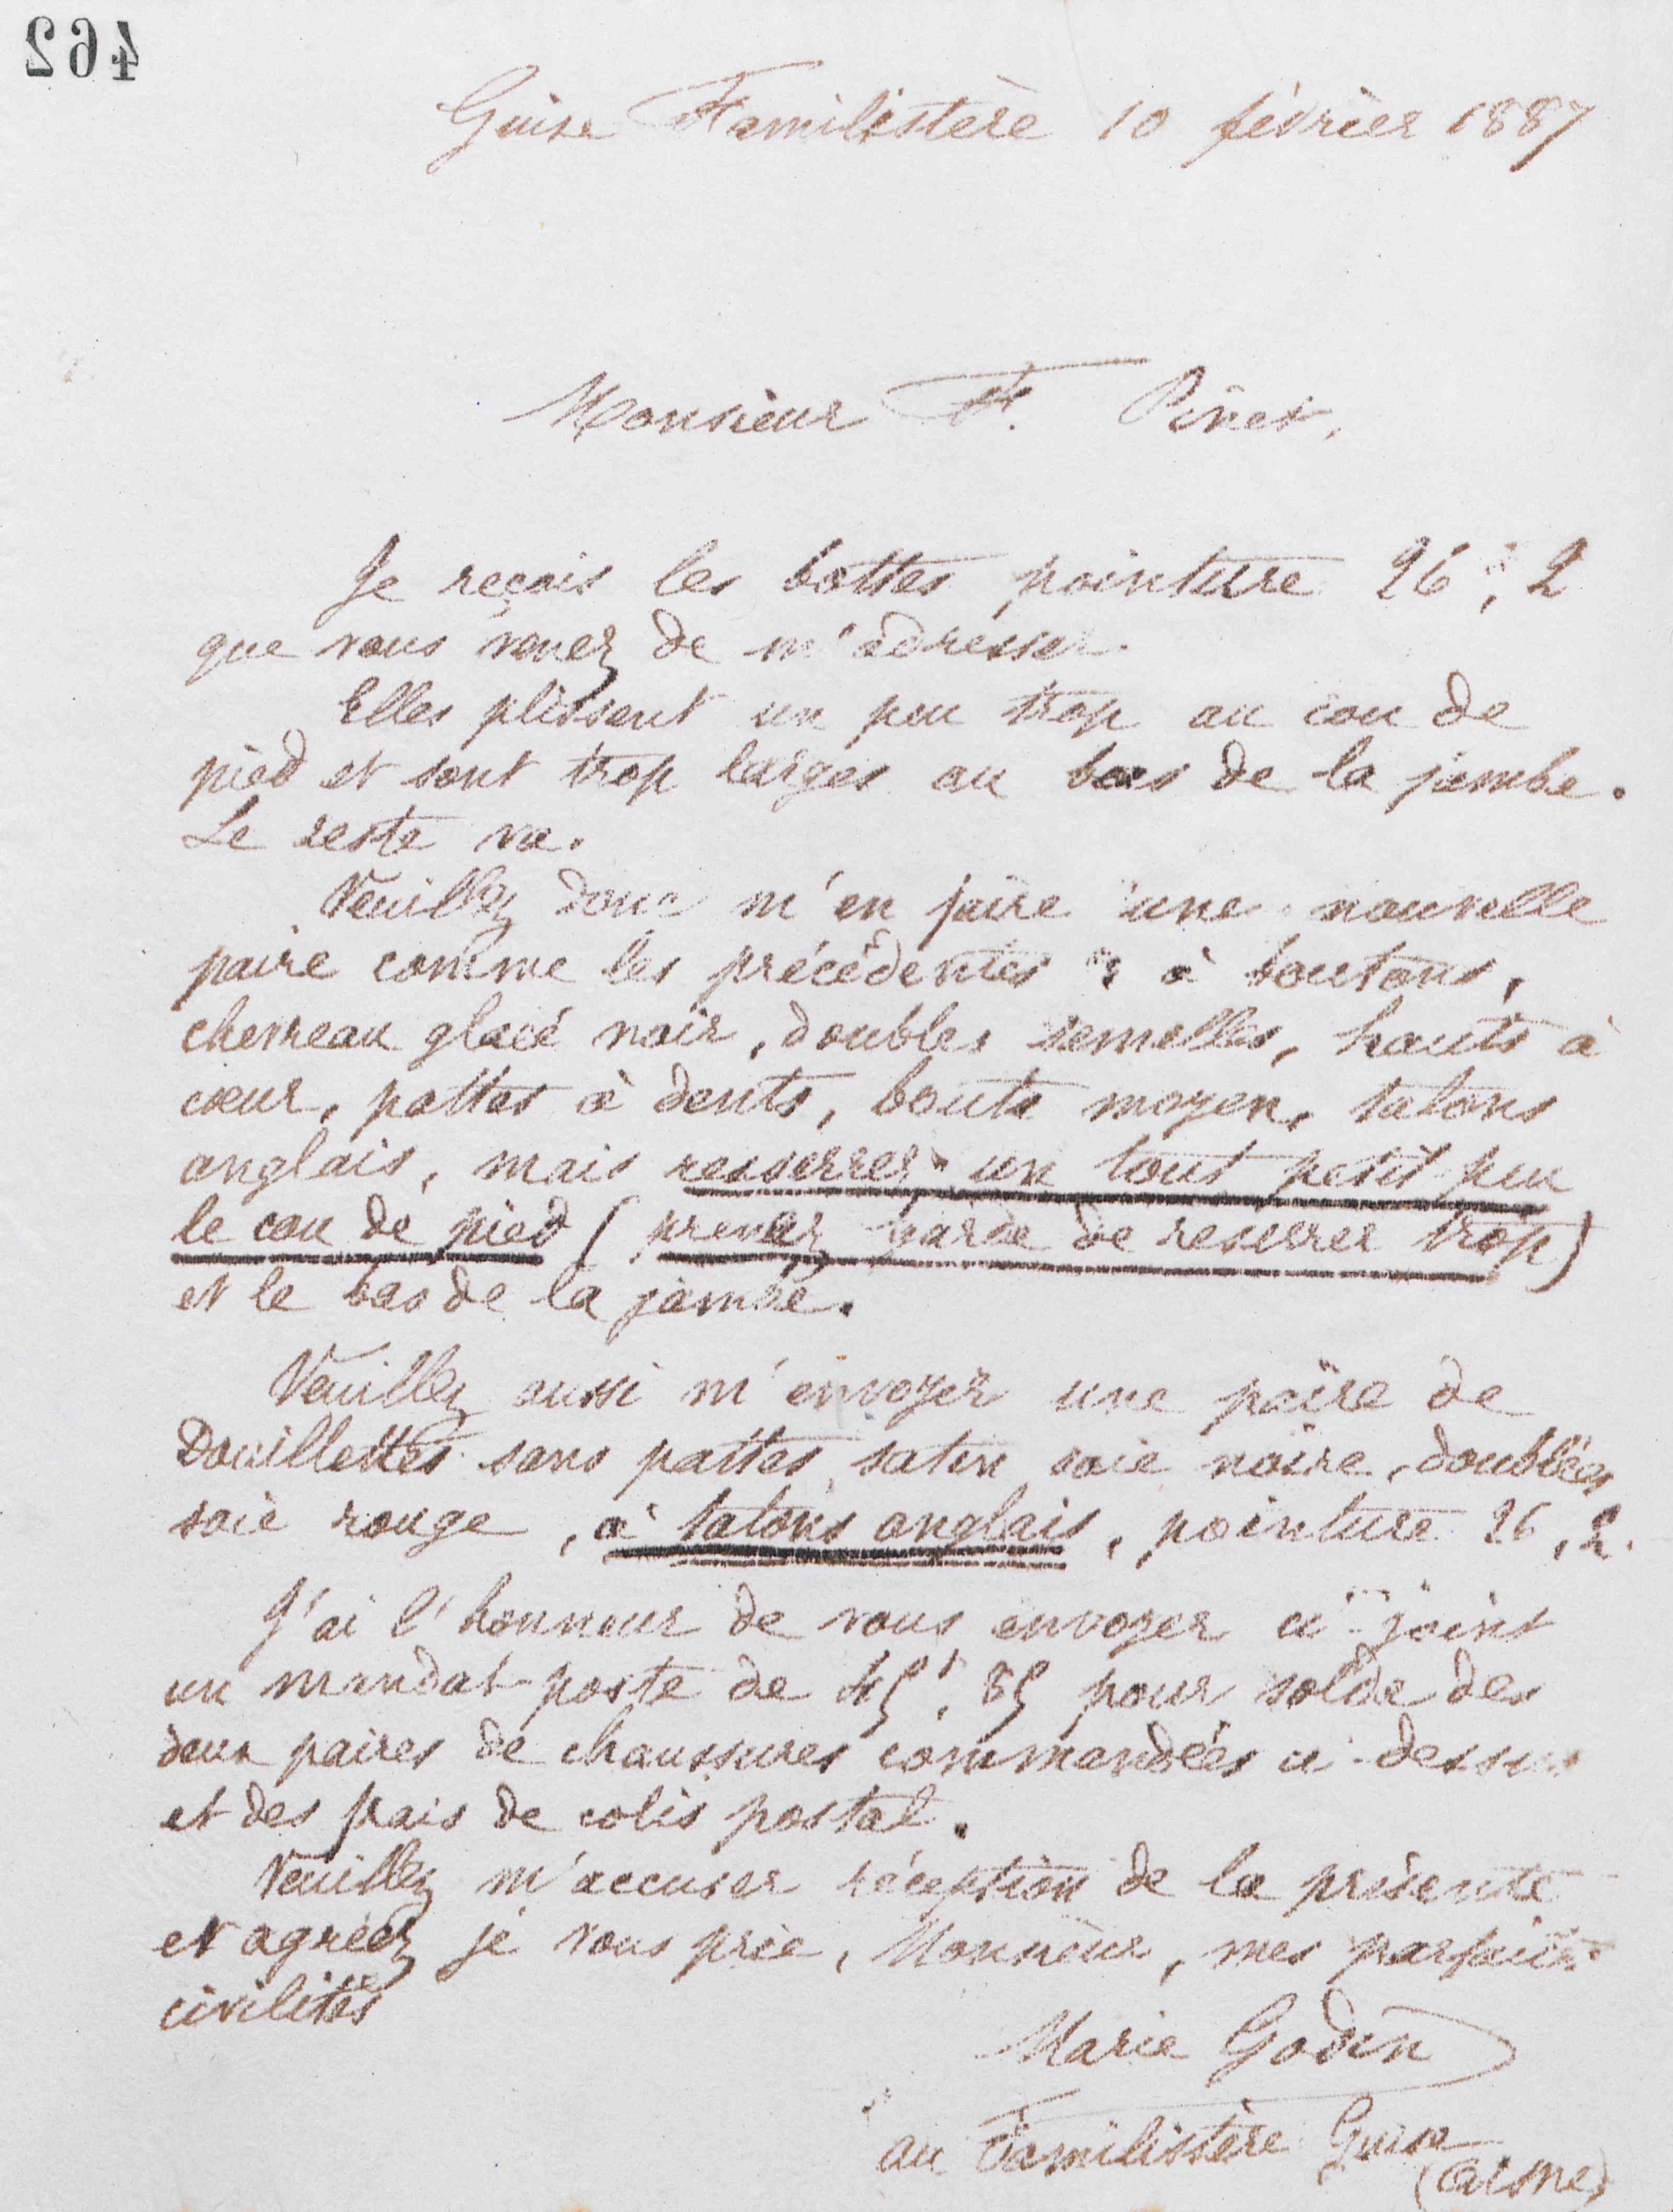 462
Guise Familistère 10 février 1887
Monsieur F. Pinet,
Je reçois les bottes pointure 26, 2
que vous venez de m'adresser.
Elles plissent un peu trop au cou de
pied et sont trop larges au bas de la jambe.
Le reste va.
Veuillez donc m'en faire une nouvelle
paire comme les précédentes : à boutons,
chevreau glacé noir, doubles semelles, hauts à
cœur, pattes à dents, bouts moyen, talons
anglais, mais resserrer un tout petit peu
le cou de pied (prenez garde de resserrer trop)
et le bas de la jambe.
Veuillez aussi m'envoyer une paire de
Douillettes sans pattes, satin soie noire, doublées
soie rouge, à talons anglais, pointure 26, 2.
J'ai l'honneur de vous envoyer ci-joint
un mandat-poste de 45f, 85 pour solde des
deux paires de chaussures commandées ci-dessus
et des frais de colis postal.
Veuillez m'accuser réception de la présente
et agréez je vous prie, Monsieur, mes parfaites
civilités
Marie Godin
au Familistère Guise
(Aisne)